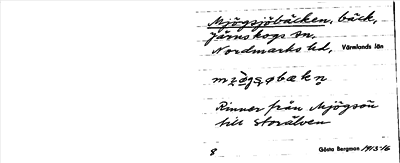 Mjögsjöbäcken, bäck,
Järnskogs sn.
Nordmarks hd, Värmlands län
Rinner från Mjögsön
till Storälven
8 Gösta Bergman 1915-16